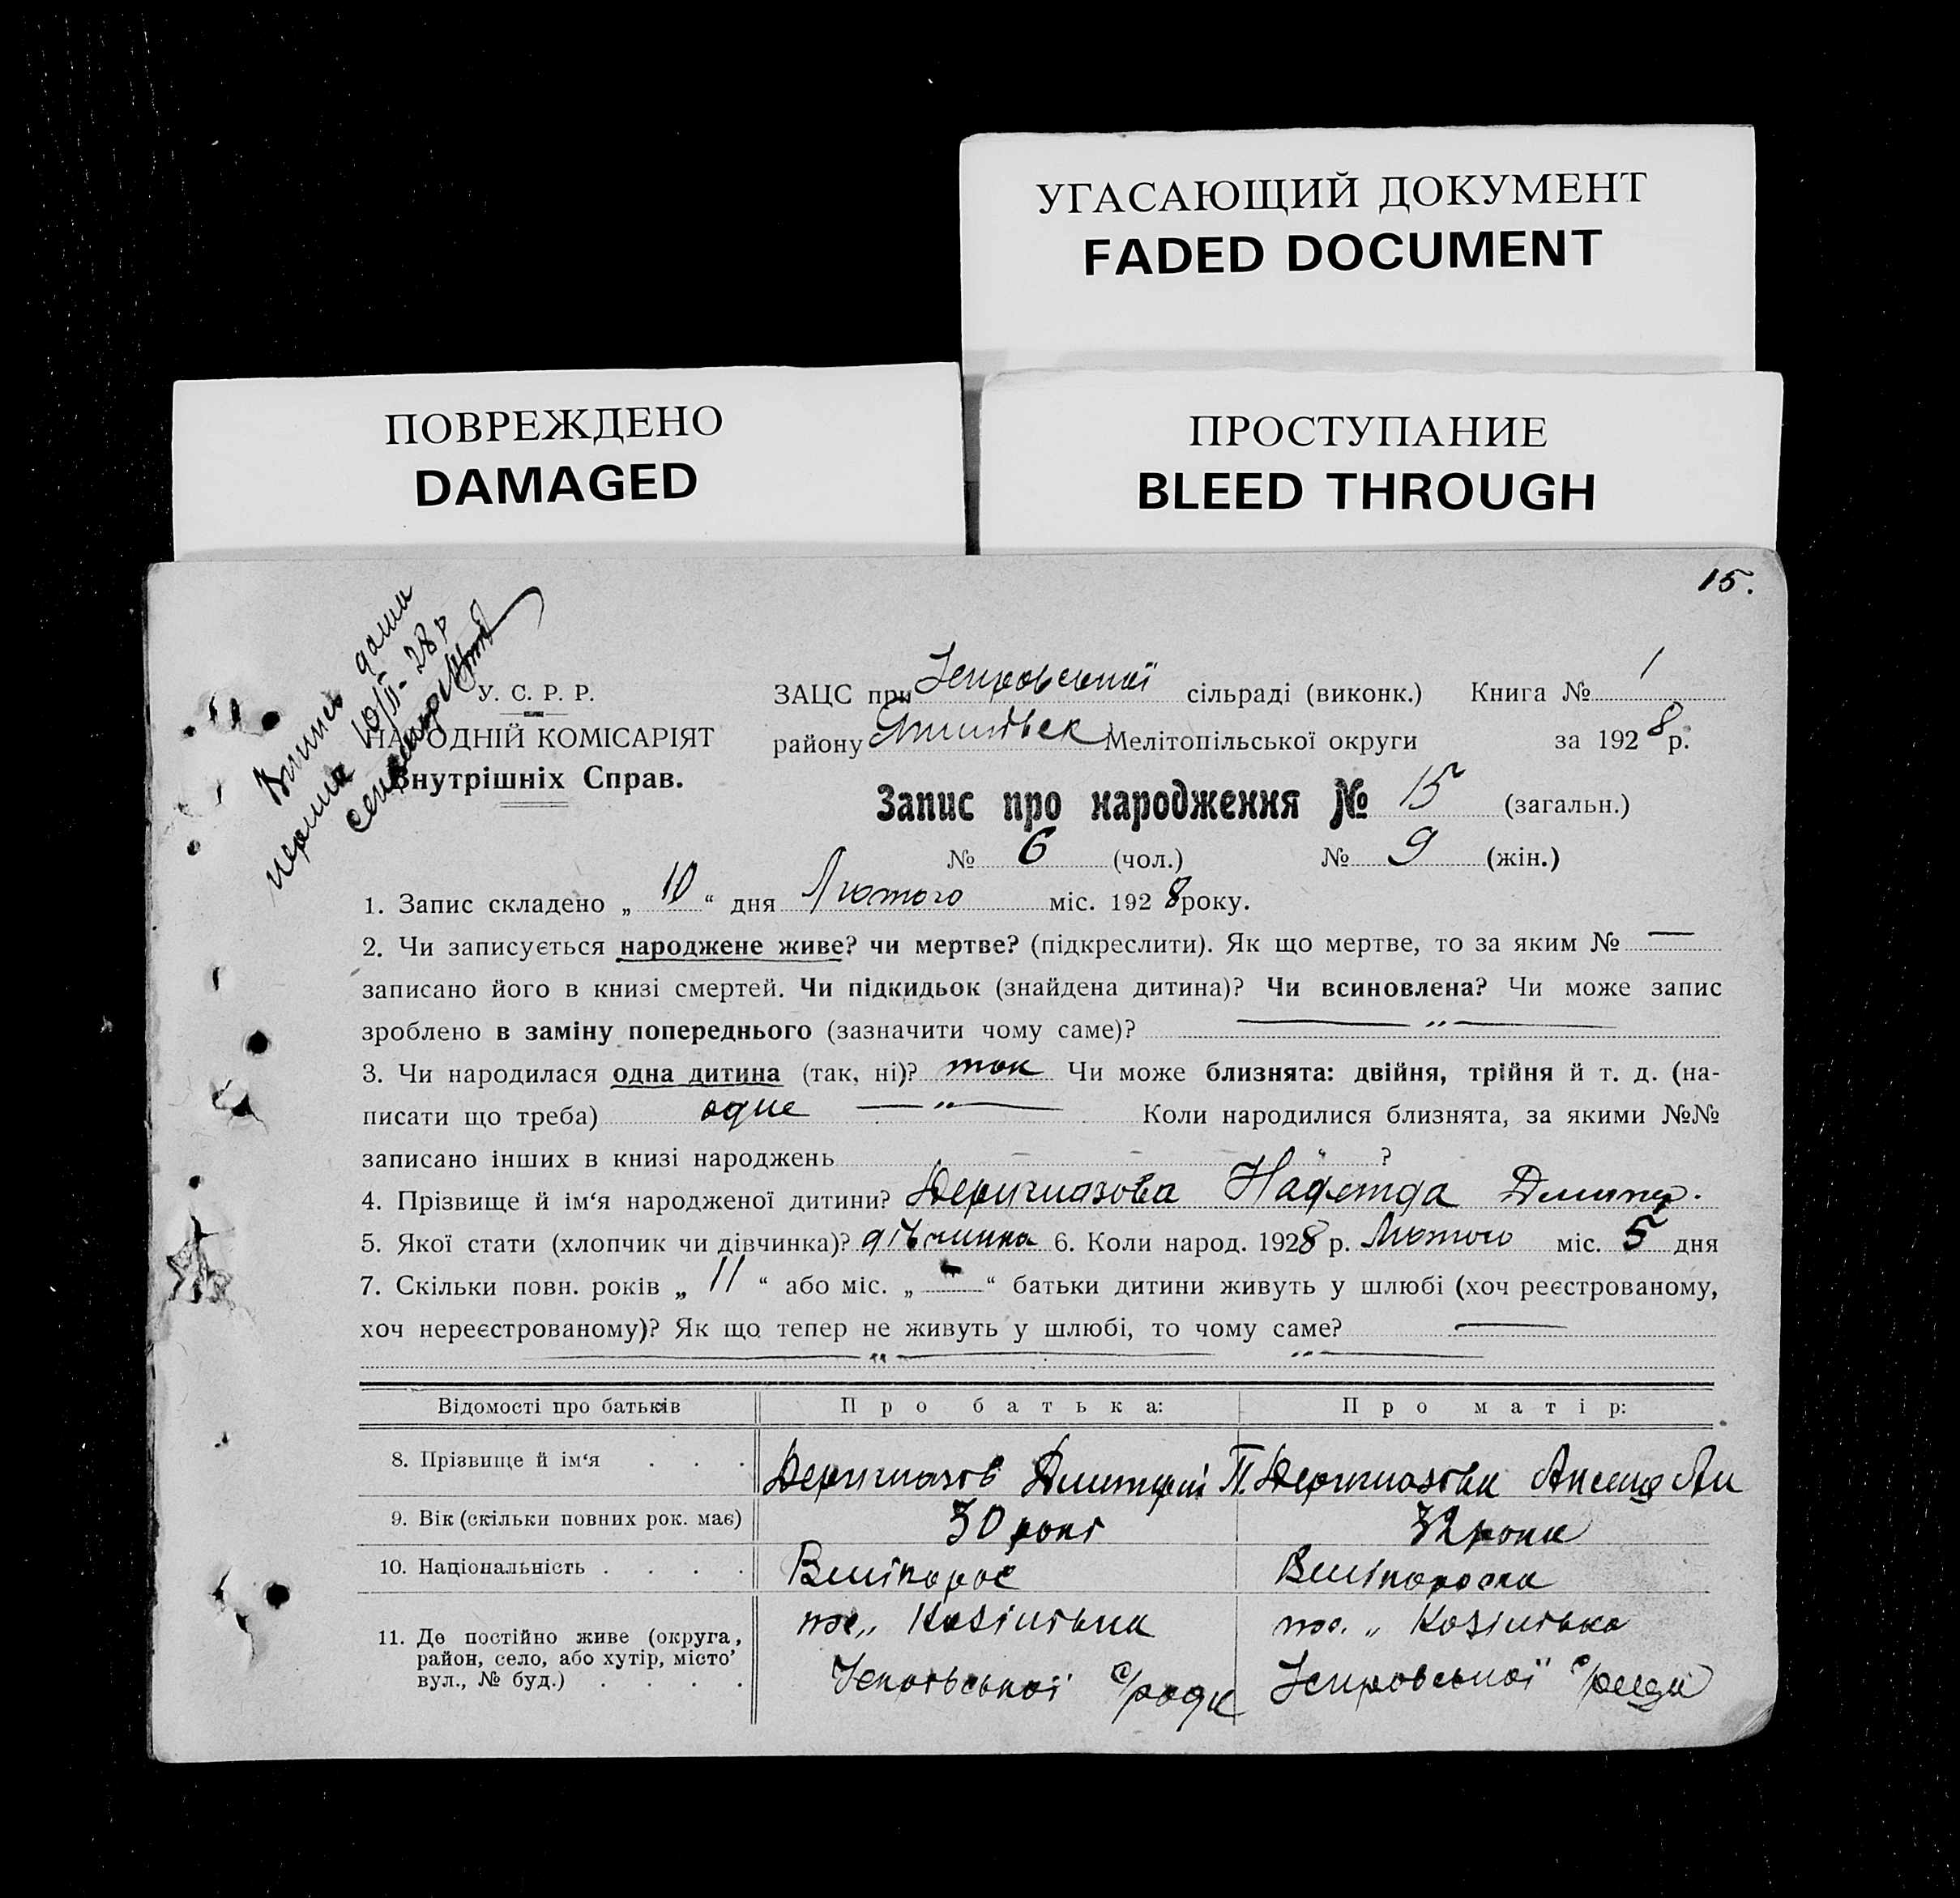 УГАСАЮЩИЙ ДОКУМЕНТ
FADED DOCUMENT
ПОВРЕЖДЕНО
DAMAGED
ПРОСТУПАНИЕ
BLEED THROUGH
15.
Випись дана
перша 10/II-28 р
У. С. Р. Р.
НАРОДНІЙ КОМІСАРІЯТ
Внутрішніх Справ.
ЗАЦС при сільраді (виконк.) Книга № 1
району Мелітопільської округи за 1928 р.
Запис про народження № 15 (загальн.)
№ 6 (чол.) № 9 (жін.)
1. Запис складено „ 10 “ дня Лютого міс. 1928 року.
2. Чи записується народжене живе? чи мертве? (підкреслити). Як що мертве, то за яким № —
записано його в книзі смертей. Чи підкидьок (знайдена дитина)? Чи всиновлена? Чи може запис
зроблено в заміну попереднього (зазначити чому саме)? — „ —
3. Чи народилася одна дитина (так, ні)? так Чи може близнята: двійня, трійня й т. д. (на-
писати що треба) одне — „ — Коли народилися близнята, за якими №№
записано інших в книзі народжень ?
4. Прізвище й ім‘я народженої дитини? Надежда Дмитр.
5. Якої стати (хлопчик чи дівчинка)? дівчинка 6. Коли народ. 1928 р. Лютого міс. 5 дня
7. Скільки повн. років „ 11 “ або міс. „ — “ батьки дитини живуть у шлюбі (хоч реєстрованому,
хоч нереєстрованому)? Як що тепер не живуть у шлюбі, то чому саме? —
— „ — „ —
Відомості про батьків Про батька: Про матір:
8. Прізвище й ім‘я . . . Дмитрій П.
9. Вік (скільки повних рок. має) 30 рокі 32 роки
10. Національність . . . . Велікорос Велікороска
11. Де постійно живе (округа,
район, село, або хутір, місто
вул., № буд.) . . . .
с/ради с/ради